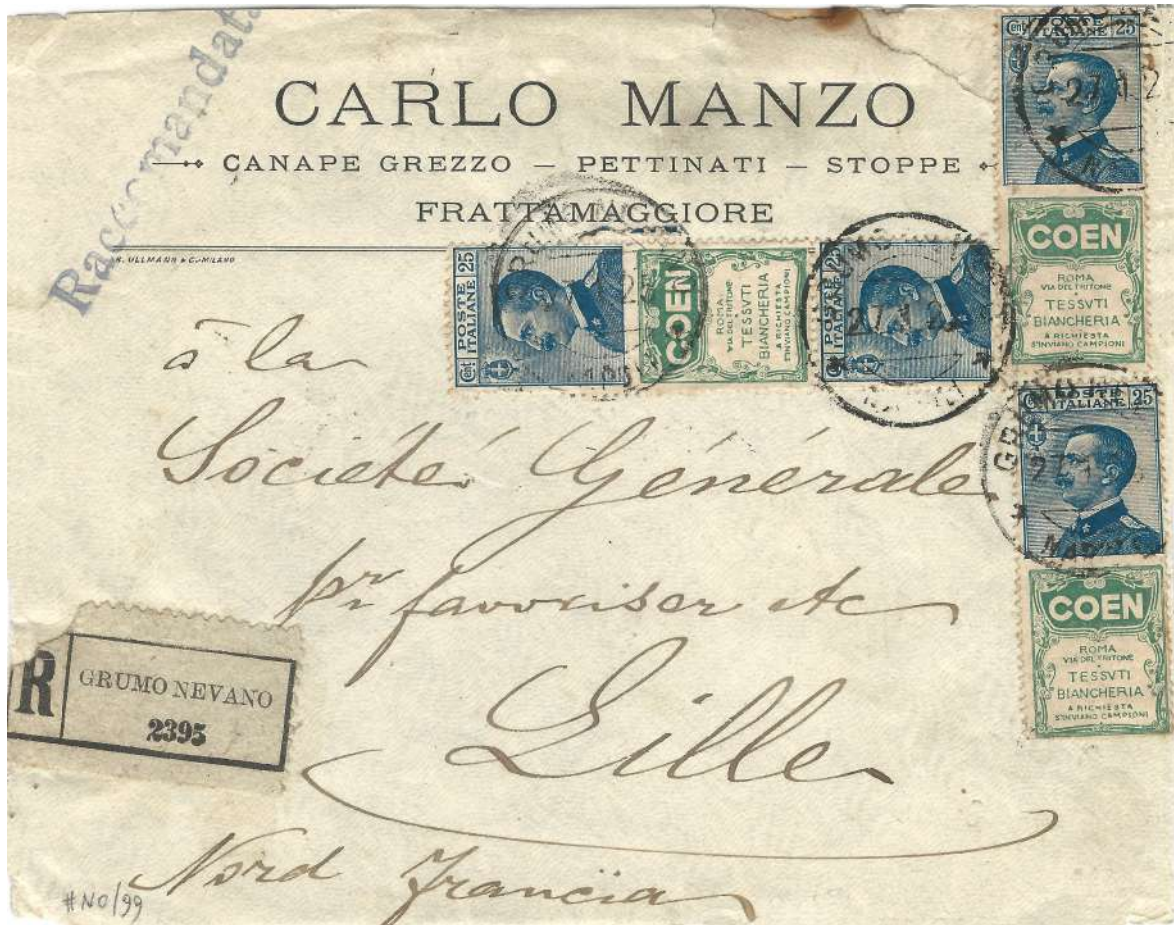 Raccomandata
CARLO MANZO
CANAPE GREZZO – PETTINATI – STOPPE
FRATTAMAGGIORE
ULLMANN & C.-MILANO
Cent 25
POSTE
ITALIANE
COEN
ROMA
VIA DEL TRITONE
TESSVTI
BIANCHERIA
A RICHIESTA
S'INVIANO CAMPIONI
Cent 25
POSTE
ITALIANE
27.1.2
Cent POSTE 25
ITALIANE
27.1.2
COEN
ROMA
VIA DEL TRITONE
TESSVTI
BIANCHERIA
A RICHIESTA
S'INVIANO CAMPIONI
Cent POSTE 25
ITALIANE
GRUMO
27.1
COEN
ROMA
VIA DEL TRITONE
TESSVTI
BIANCHERIA
A RICHIESTA
S'INVIANO CAMPIONI
à la
Societé Générale
pr favoriser etc
Lille
Nord Francia
R
GRUMO NEVANO
2395
#NO/99